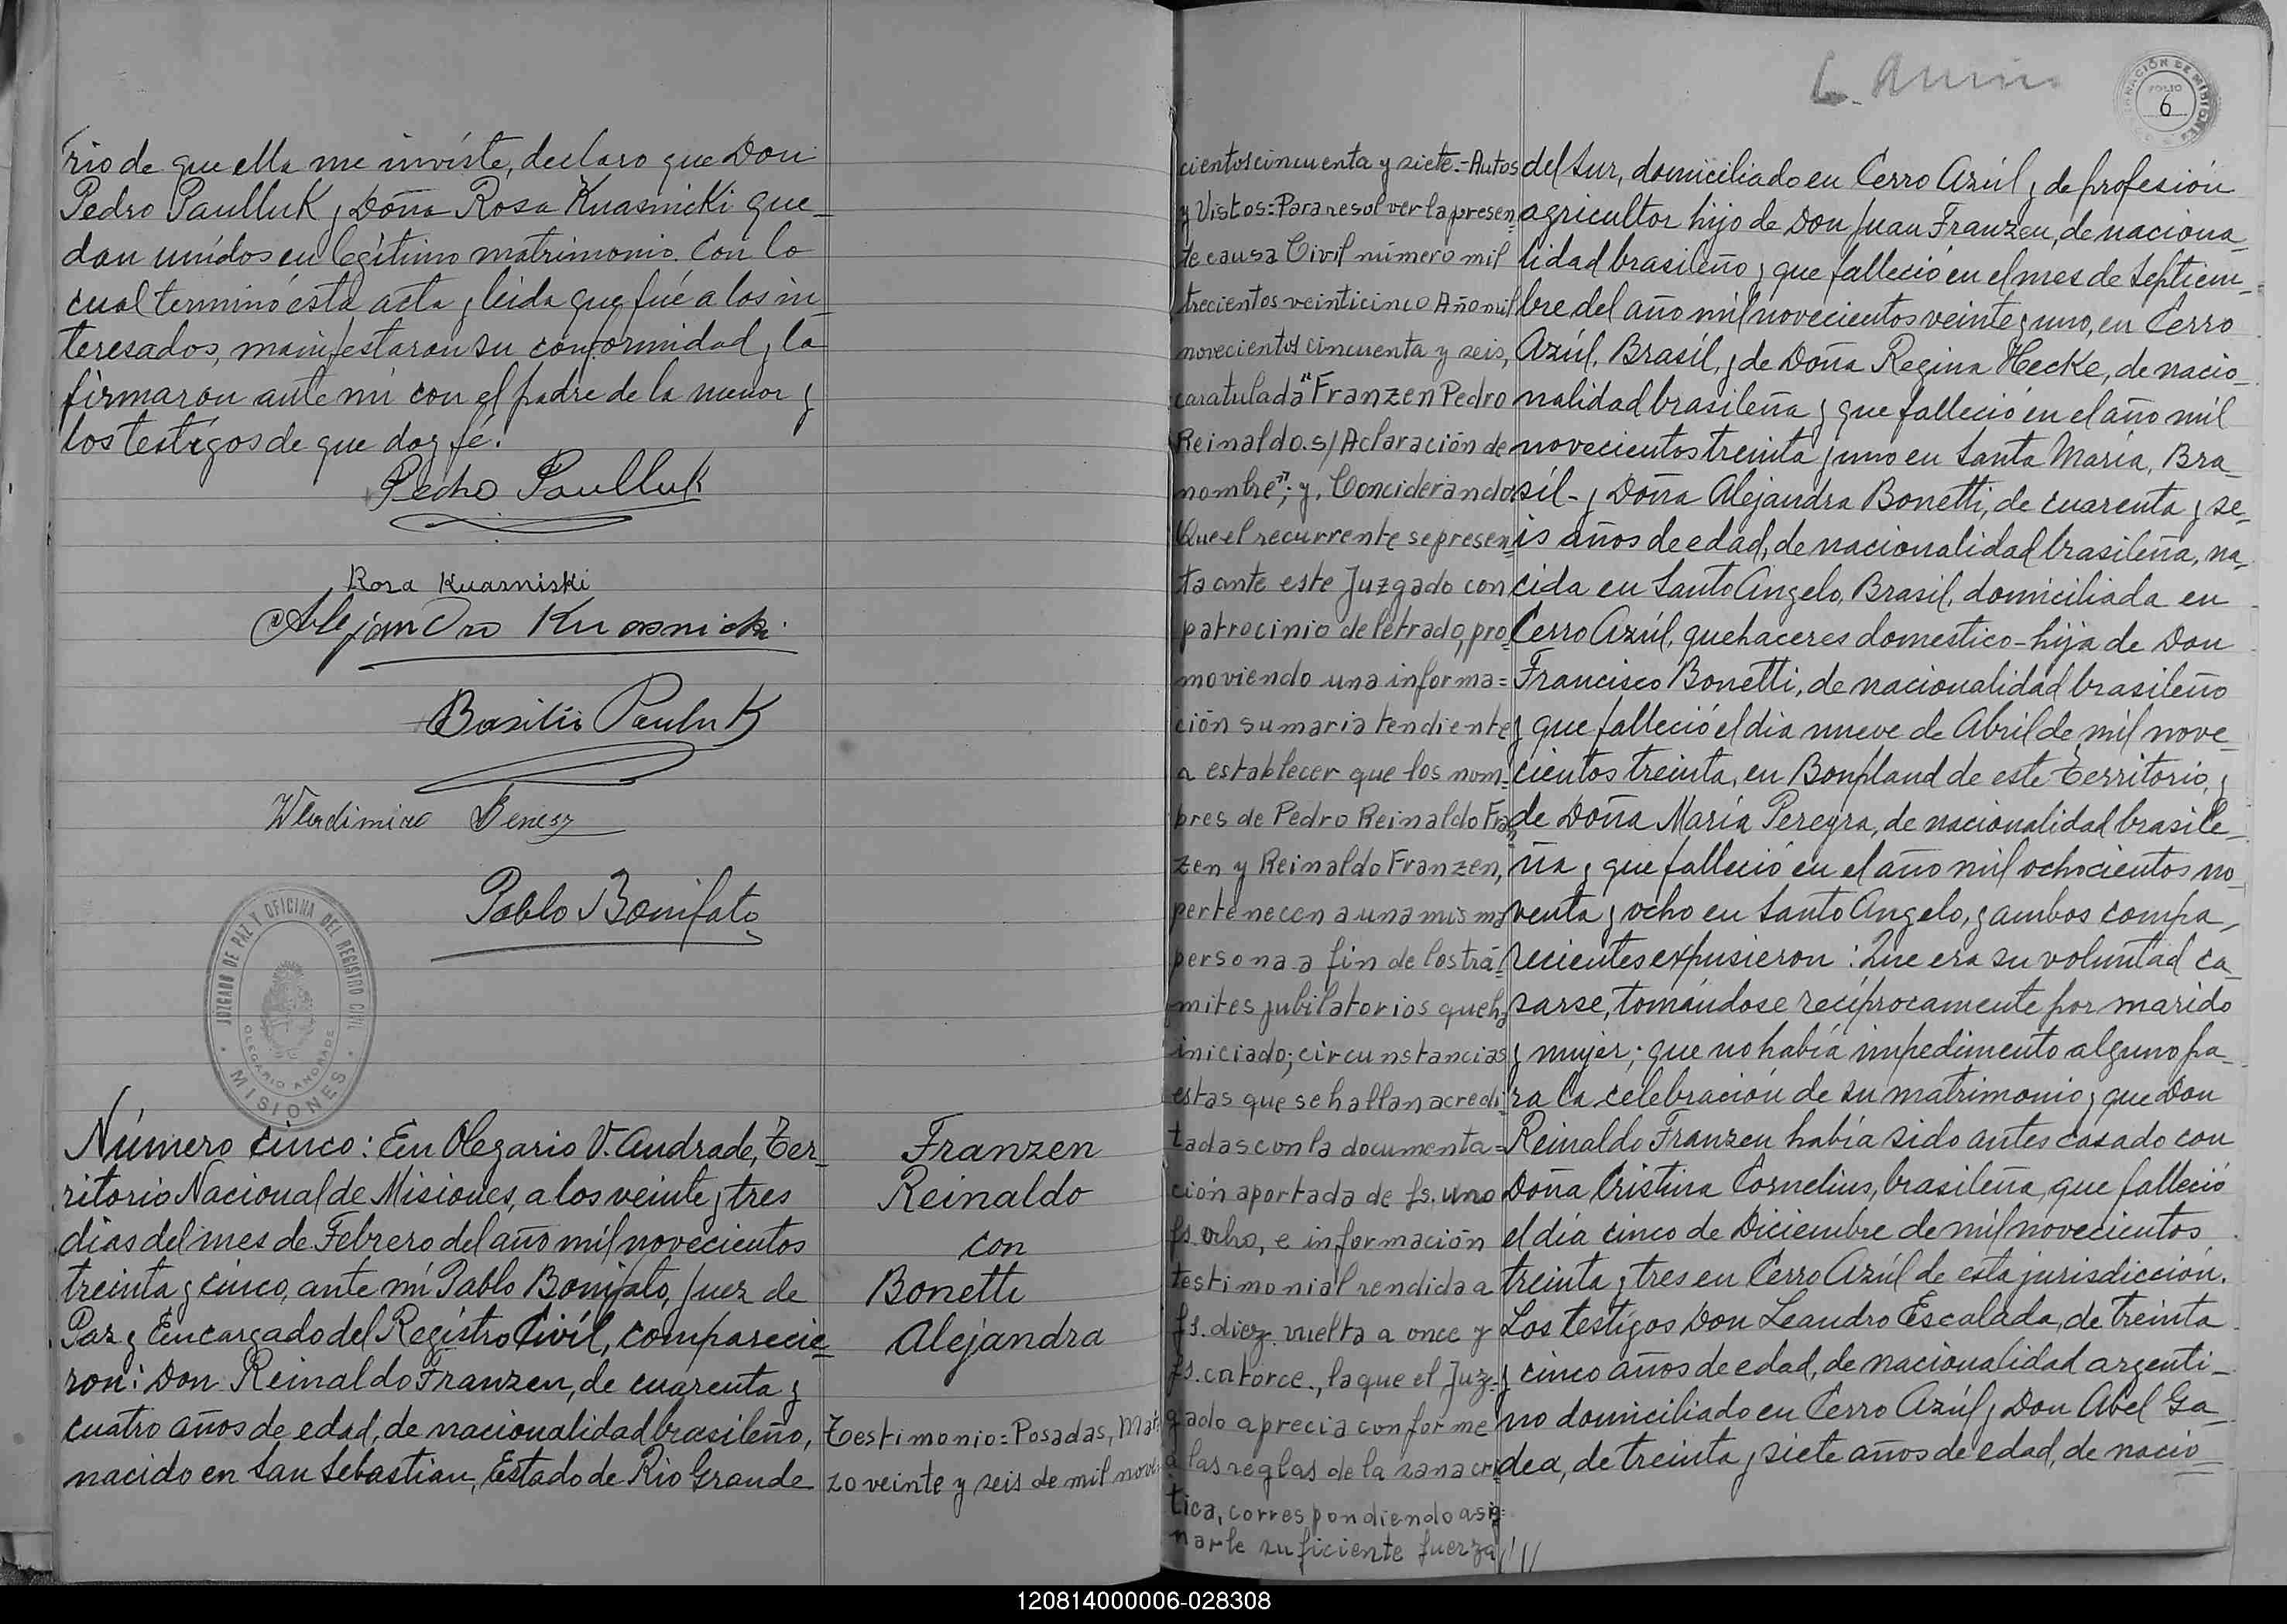 rio de que ella me invíste, declaro que Don
Pedro Paulluk y Doña Rosa Kuasnicki que_
dan unídos en legítimo matrimonio. Con lo
cual terminó ésta acta y leída que fué a los in_
teresados, manifestaron su conformidad y la
firmaron ante mí con el padre de la menor y
los testigos de que doy fé.
Pedro Paulluk
Rosa Kuasniski
Alejandro Kuasnicki
Basilio Pauluk
Wladimiro
Pablo Bonifato
JUZGADO DE PAZ Y OFICINA DEL REGISTRO CIVIL
OLEGARIO ANDRADE
MISIONES
Número cinco: En Olegario V. Andrade, Ter_
ritorio Nacional de Misiones, a los veinte y tres
días del mes de Febrero del año míl novecientos
treinta y cinco, ante mí Pablo Bonifato, Juez de
Paz y Encargado del Regístro Civíl, comparecie_
ron: Don Reinaldo Franzen, de cuarenta y
cuatro años de edad, de nacionalidad brasileño,
nacido en San Sebastian, Estado de Rio Grande
Franzen
Reinaldo
con
Bonetti
Alejandra
Testimonio=Posadas, Mar
zo veinte y seis de mil nove
cientos cincuenta y siete.-Autos
y Vistos:Para resolver la presen=
te causa Civil número mil
trecientos veinticinco Año mil
novecientos cincuenta y seis,
caratulada "Franzen Pedro
Reinaldo.s/Aclaración de
nombre"; y, Conciderando
Que el recurrente se presen=
ta ante este Juzgado con
patrocinio de letrado, pro=
moviendo una informa=
ción sumaria tendiente
a establecer que los nom=
bres de Pedro Reinaldo Fran
zen y Reinaldo Franzen,
pertenecen a una misma
persona a fin de los trá=
mites jubilatorios que ha
iniciado; circunstancias
estas que se hallan acredi=
tadas con la documenta=
ción aportada de fs. uno
fs. ocho, e información
testimonial rendida a
fs. diez vuelta a once y
fs. catorce., la que el Juz=
gado aprecia conforme
a las reglas de la sana crí
tica, correspondiendo asig=
narle suficiente fuerza ////
6
FOLIO
del Sur, domiciliado en Cerro Azúl y de profesión
agricultor hijo de Don Juan Franzen, de naciona_
lidad brasileño y que falleció en el mes de Septiem_
bre del año míl novecientos veinte y uno, en Cerro
Azúl, Brasíl, y de Doña Regina Hecke, de nacio_
nalidad brasileña y que falleció en el año míl
novecientos treinta y uno en Santa María, Bra_
síl- y Doña Alejandra Bonetti, de cuarenta y se_
is años de edad, de nacionalidad brasileña, na_
cida en Santo Angelo, Brasil, domiciliada en
Cerro Azúl, quehaceres domestico-hija de Don
Francisco Bonetti, de nacionalidad brasileño
y que falleció el dia nueve de Abril de míl nove_
cientos treinta, en Bonpland de este Territorio, y
de Doña María Pereyra, de nacionalidad brasile_
ña y que falleció en el año mil ochocientos no_
venta y ocho en Santo Angelo, y ambos compa_
recientes expusieron: Que era su voluntad ca_
sarse, tomándose recíprocamente por marido
y mujer; que no había impedimento alguno pa_
ra la celebración de su matrimonio y que Don
Reinaldo Franzen había sido antes casado con
Doña Cristina Cornelius, brasileña, que falleció
el día cinco de Diciembre de míl novecientos
treinta y tres en Cerro Azúl de esta jurisdicción.
Los testígos Don Leandro Escalada, de treinta
y cinco años de edad, de nacionalidad argenti_
no domiciliado en Cerro Azúl y Don Abel Ga_
dea, de treinta y siete años de edad, de nacio_
120814000006-028308